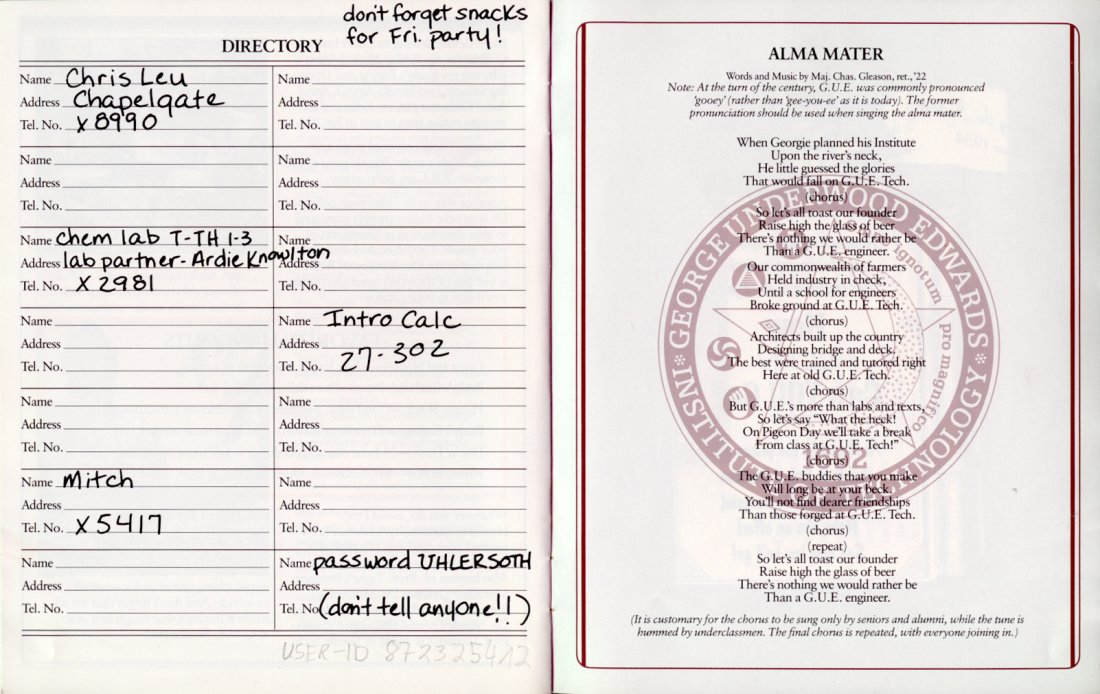 don't forget snacks
for Fri. party!
DIRECTORY
Name Chris Leu
Address Chapelgate
Tel. No. X8990
Name
Address
Tel. No.
Name chem lab T-TH 1-3
Address lab partner - Ardie Knowlton
Tel. No. X2981
Name
Address
Tel. No.
Name
Address
Tel. No.
Name Mitch
Address
Tel. No. X5417
Name
Address
Tel. No.
Name
Address
Tel. No.
Name
Address
Tel. No.
Name
Address
Tel. No.
Name Intro Calc
Address
Tel. No. 27-302
Name
Address
Tel. No.
Name
Address
Tel. No.
Name password UHLERSOTH
Address
Tel. No (don't tell anyone!!)
USER-ID 872325412
ALMA MATER
Words and Music by Maj. Chas. Gleason, ret., '22
Note: At the turn of the century, G.U.E. was commonly pronounced
'gooey' (rather than 'gee-you-ee' as it is today). The former
pronunciation should be used when singing the alma mater.
When Georgie planned his Institute
Upon the river's neck,
He little guessed the glories
That would fall on G.U.E. Tech.
(chorus)
So let's all toast our founder
Raise high the glass of beer
There's nothing we would rather be
Than a G.U.E. engineer.
Our commonwealth of farmers
Held industry in check,
Until a school for engineers
Broke ground at G.U.E. Tech.
(chorus)
Architects built up the country
Designing bridge and deck.
The best were trained and tutored right
Here at old G.U.E. Tech.
(chorus)
But G.U.E.'s more than labs and texts,
So let's say "What the heck!
On Pigeon Day we'll take a break
From class at G.U.E. Tech!"
(chorus)
The G.U.E. buddies that you make
Will long be at your beck.
You'll not find dearer friendships
Than those forged at G.U.E. Tech.
(chorus)
(repeat)
So let's all toast our founder
Raise high the glass of beer
There's nothing we would rather be
Than a G.U.E. engineer.
(It is customary for the chorus to be sung only by seniors and alumni, while the tune is
hummed by underclassmen. The final chorus is repeated, with everyone joining in.)
GEORGE UNDERWOOD EDWARDS
INSTITUTE OF TECHNOLOGY
ignotum
pro magnifico
1692